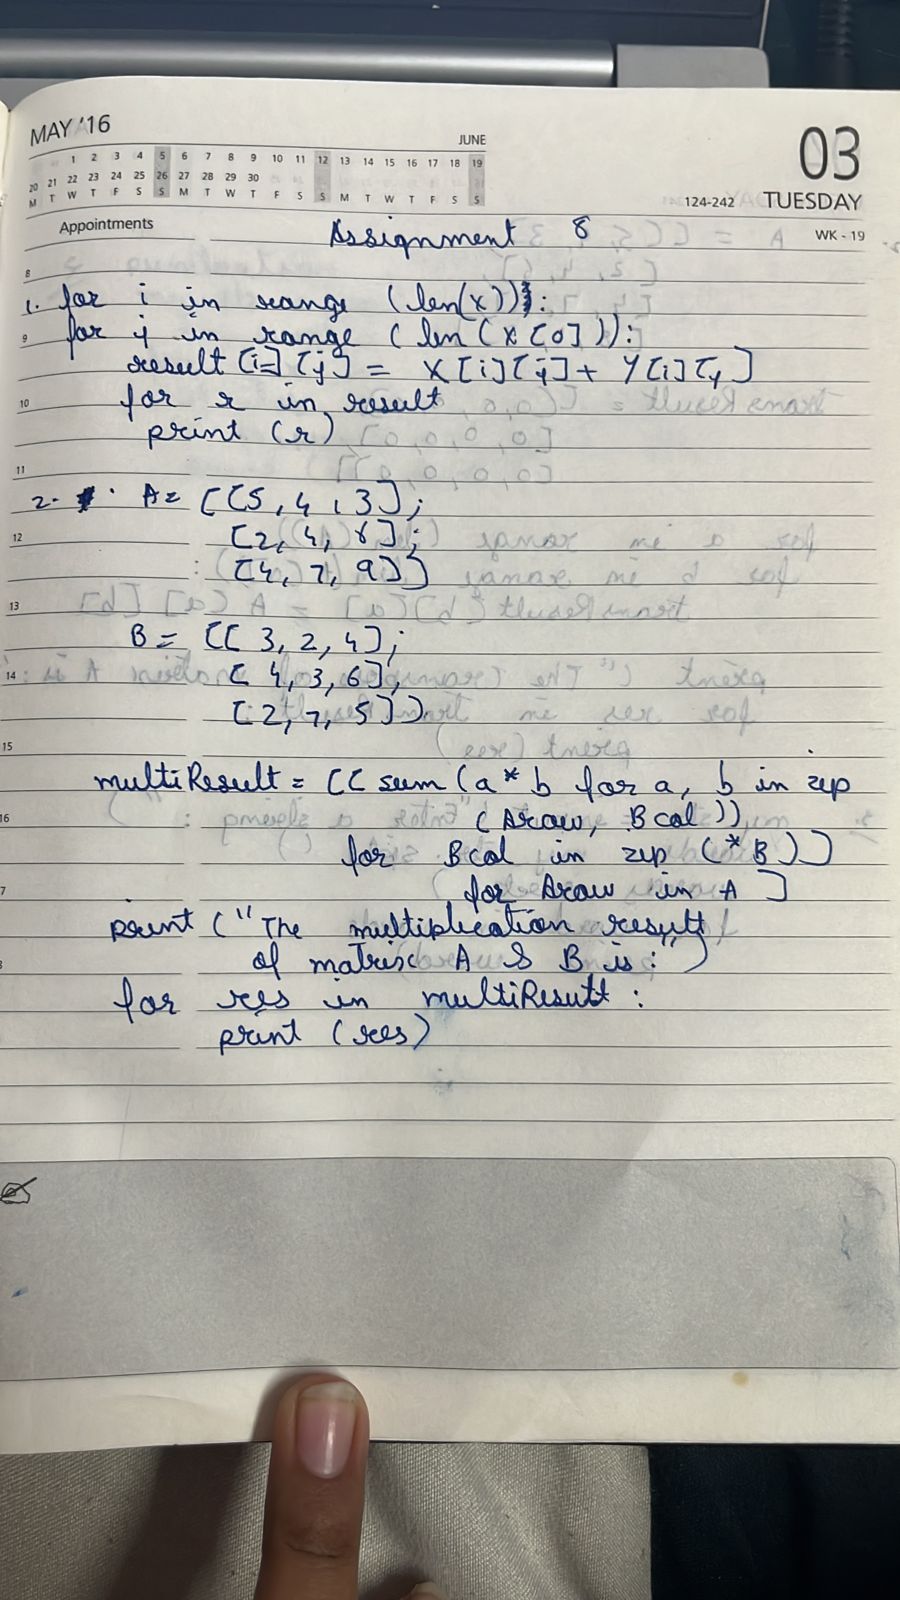 MAY '16
JUNE
03
1 2 3 4 5 6 7 8 9 10 11 12 13 14 15 16 17 18 19
20 21 22 23 24 25 26 27 28 29 30
M T W T F S S M T W T F S S M T W T F S S
124-242 TUESDAY
Appointments
WK - 19
Assignment 8
8
1. for i in range (len(x)):
9 for j in range (len (x[0])):
result [i] [j] = X[i][j] + Y[i][j]
10 for r in result
print (r)
11
2. A= [[5, 4, 3];
12 [2, 4, 6];
[4, 7, 9]]
13
B = [[ 3, 2, 4];
14 [ 4, 3, 6];
[2, 7, 5]]
15
multiResult = [[ sum (a * b for a, b in zip
16 (Arow, Bcol))
for Bcol in zip (*B)]
7 for Arow in A ]
print ("The multiplication result
of matrix A & B is:")
for res in multiResult :
print (res)